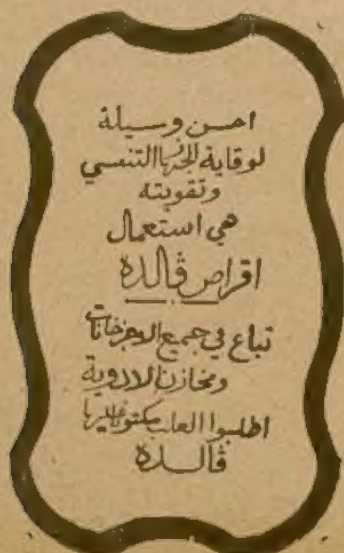 احسن وسيلة
لوقاية الجهاز التنفسي
وتقويته
هي استعمال
اقراص ڤالدة
تباع في جميع الاجزخانات
ومخازن الادوية
اطلبوا العلب مكتوبا عليها
ڤالدة